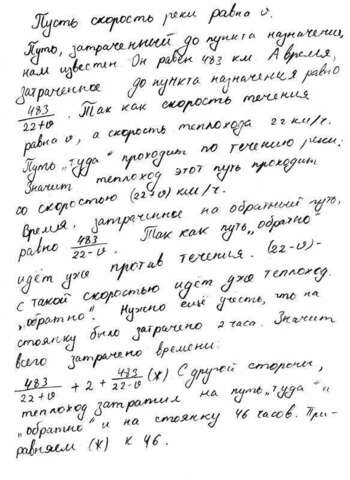 Пусть скорость реки равна v.
Путь, затраченный до пункта назначения,
нам известен. Он равен 483 км. А время,
затраченное до пункта назначения равно
483/(22+v). Так как скорость течения
равна v, а скорость теплохода 22 км/ч.
Путь „туда“ проходит по течению реки.
Значит теплоход этот путь проходит
со скоростью (22+v) км/ч.
Время, затраченное на обратный путь,
равно 483/(22-v). Так как путь „обратно“
идёт уже против течения. (22-v)-
с такой скоростью идёт уже теплоход
„обратно“. Нужно ещё учесть, что на
стоянку было затрачено 2 часа. Значит
всего затрачено времени.
483/(22+v) + 2 + 483/(22-v) (*) С другой стороны,
теплоход затратил на путь „туда“ и
„обратно“ и на стоянку 46 часов. При-
равняем (*) к 46.